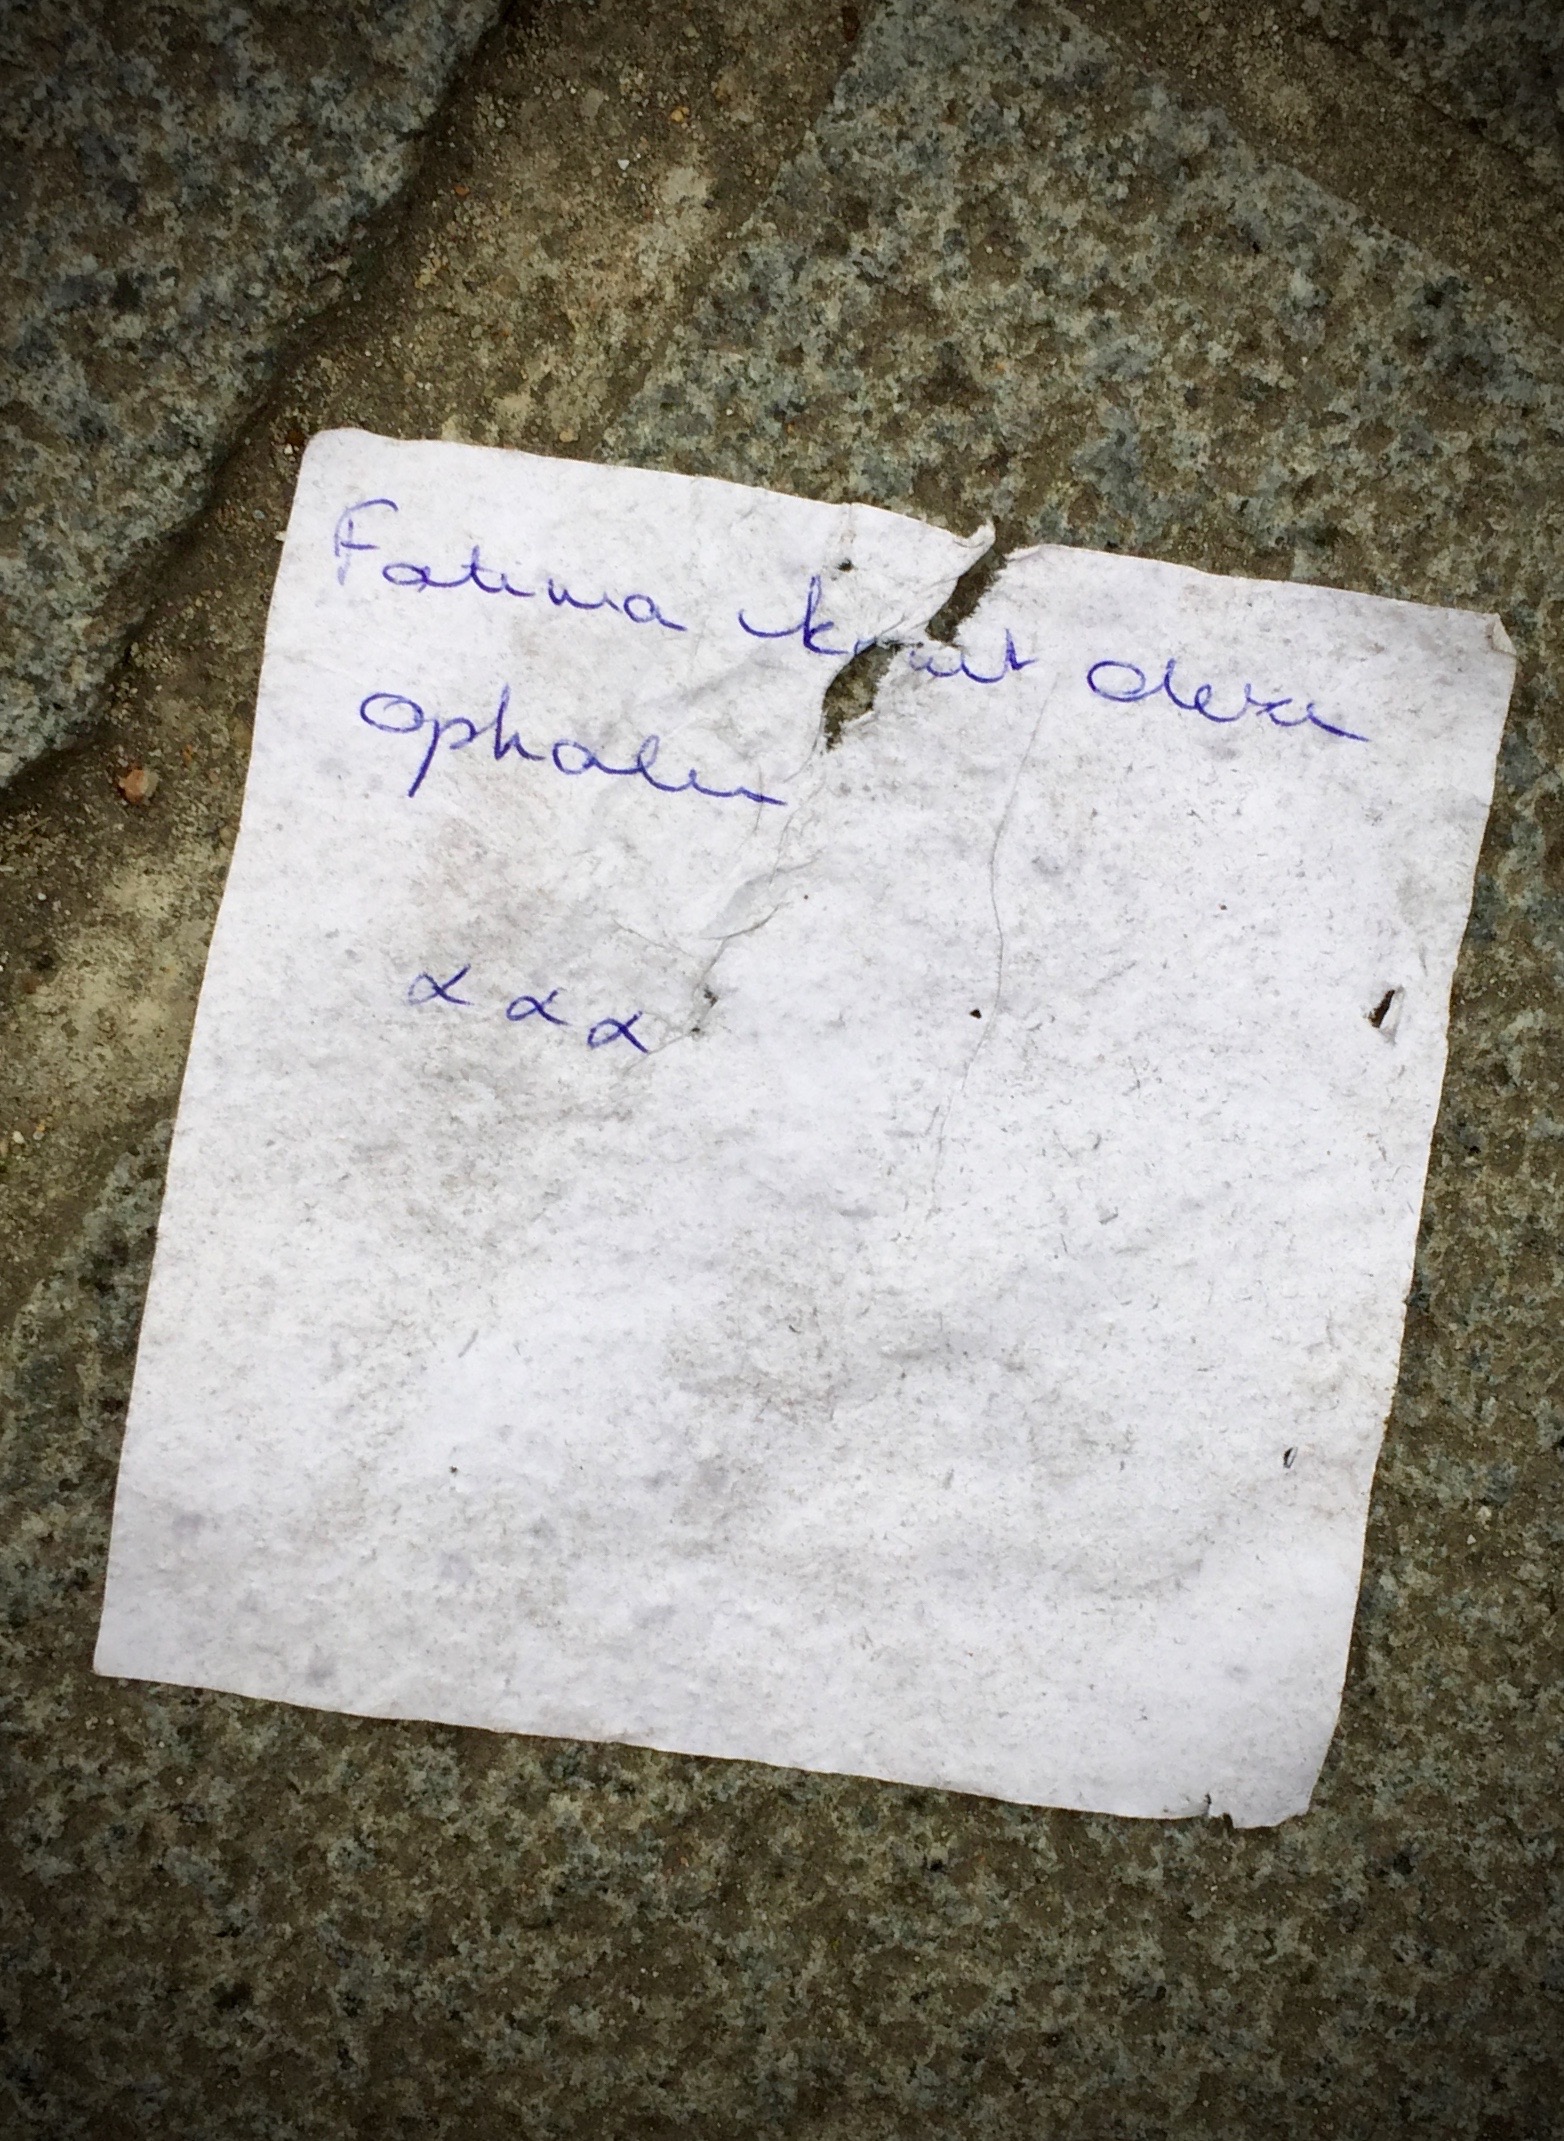 Fatima komt deze
ophalen
xxx